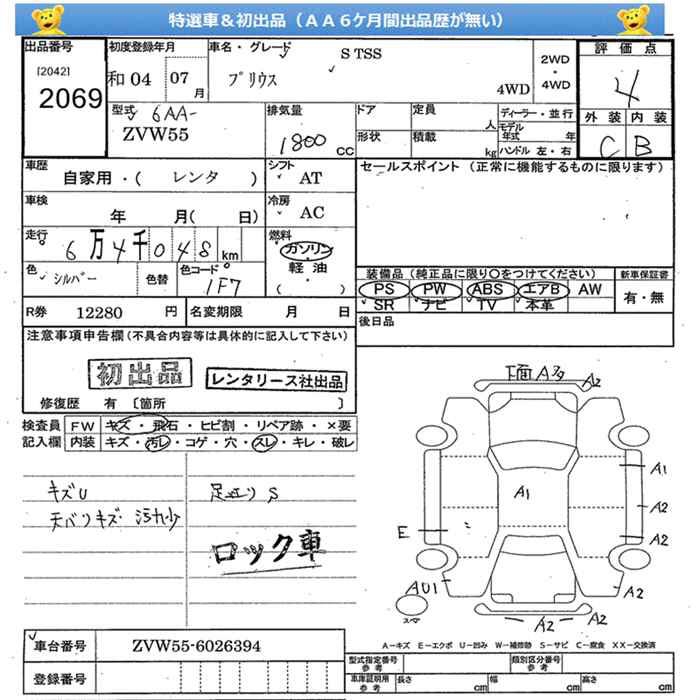 特選車＆初出品（ＡＡ６ケ月間出品歴が無い）
出品番号 初度登録年月 車名・グレード S TSS 2WD ・ 4WD 評価点
[2042] 2069 和04 07 月 プリウス 4WD 4
型式 6AA- 排気量 ドア 定員 人 ディーラー・並行 外装 内装
ZVW55 1800 CC 形状 積載 kg モデル年式 年 C B
ハンドル 左・右
車歴 シフト セールスポイント（正常に機能するものに限ります）
自家用・( レンタ ) AT
車検 冷房
年 月( 日) AC
走行 燃料
6万4千048 km ガソリン
色 シルバー 色替 色コード 1F7 軽油 装備品（純正品に限り○をつけてください） 新車保証書
PS PW ABS エアB AW 有・無
R券 12280 円 名変期限 月 日 SR ナビ TV 本革
注意事項申告欄(不具合内容等は具体的に記入して下さい) 後日品
初出品 レンタリース社出品
修復歴 有 〔箇所 〕
検査員 FW キズ・飛石・ヒビ割・リペア跡・×要
記入欄 内装 キズ・汚レ・コゲ・穴・スレ・キレ・破レ
キズU 足廻りS
天バリキズ・汚れ少
ロック車
下面A多 A2
A1
A1
A2
E A2
AU1 A2
スマ A2 A2
車台番号 ZVW55-6026394 A－キズ E－エクボ U－凹み W－補修跡 S－サビ C－腐食 XX－交換済
登録番号 型式指定番号 参考 類別区分番号 参考
車庫証明用 参考 長さ cm 幅 cm 高さ cm